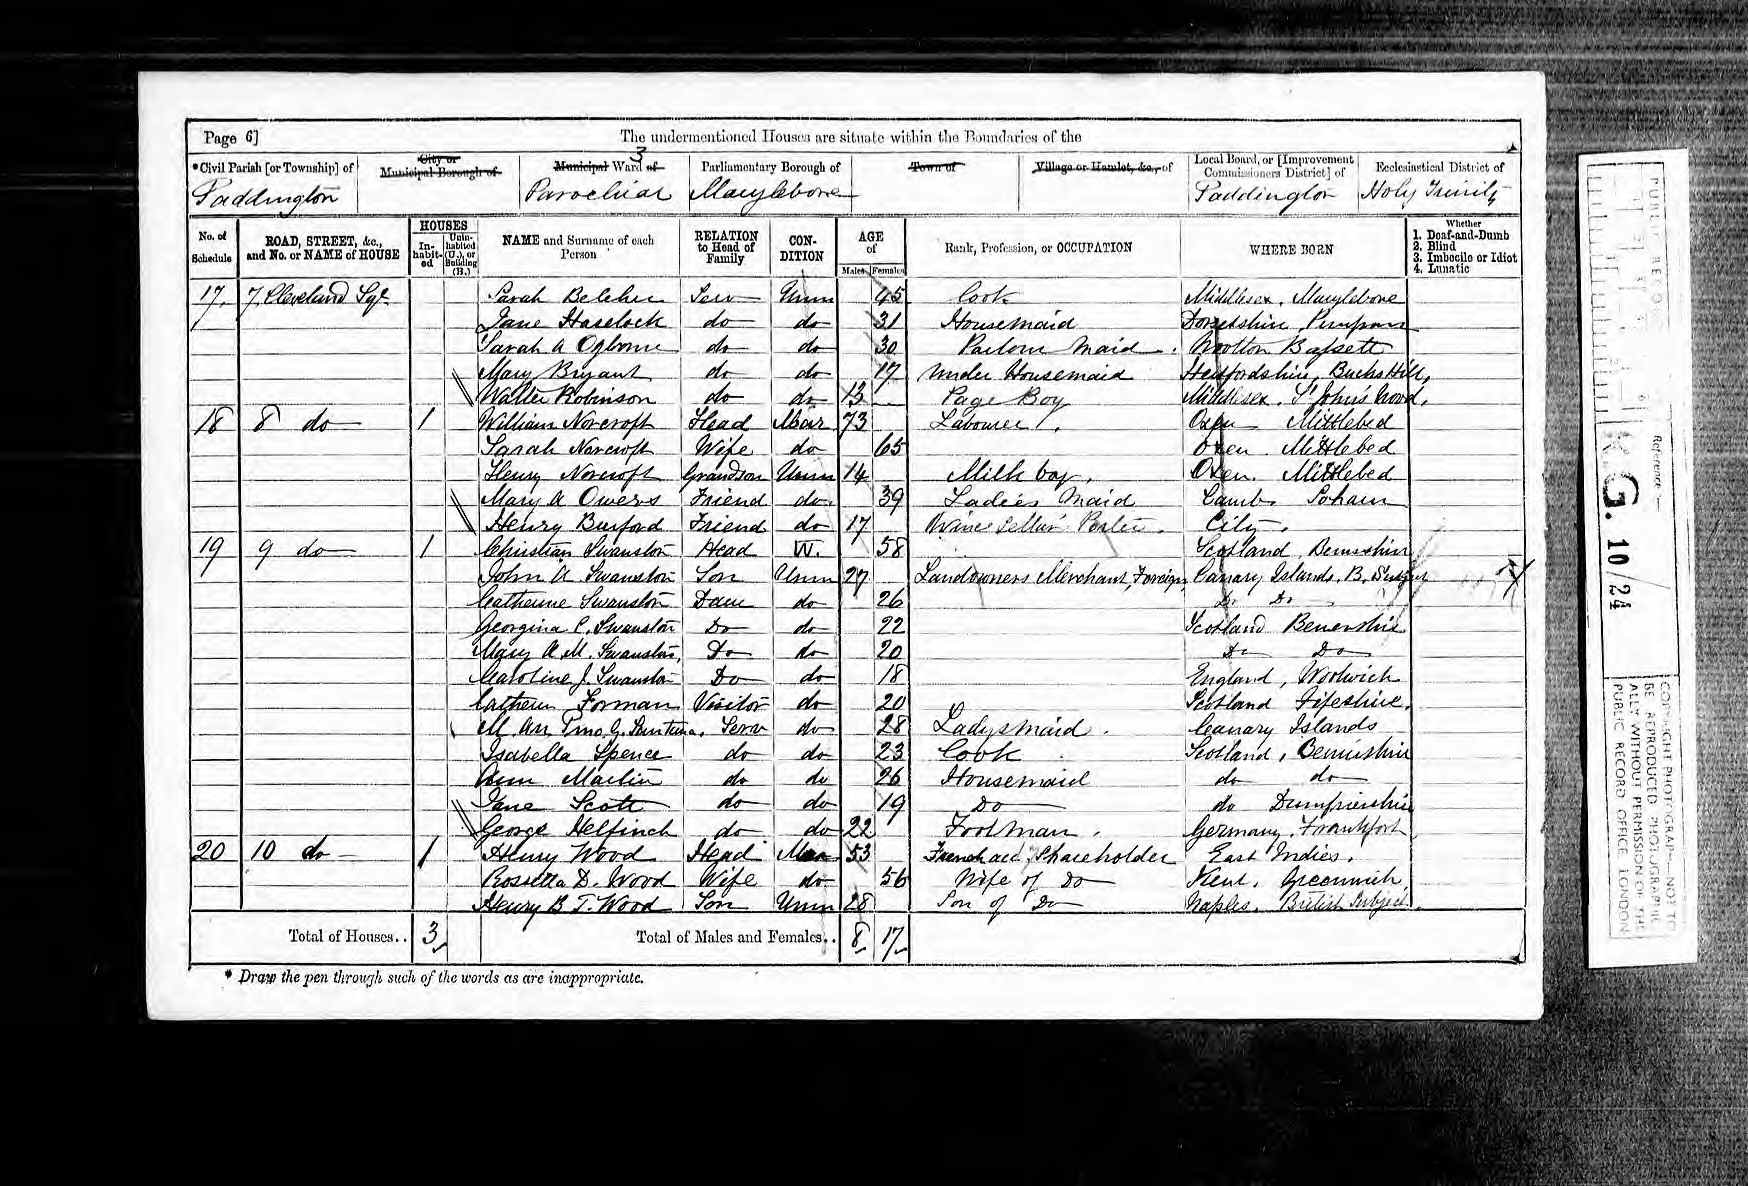 Page 6]
The undermentioned Houses are situate within the Boundaries of the
*Civil Parish [or Township] of City or Municipal Borough of Municipal Ward of Parliamentary Borough of Town of Village or Hamlet, &c., of Local Board, or [Improvement Commissioners District] of Ecclesiastical District of
3
Paddington Parochial Marylebone Paddington Holy Trinity
No. of Schedule ROAD, STREET, &c., and No. or NAME of HOUSE HOUSES In-habit-ed Unin-habited (U.), or Building (B.) NAME and Surname of each Person RELATION to Head of Family CON-DITION AGE of Males Females Rank, Profession, or OCCUPATION WHERE BORN Whether 1. Deaf-and-Dumb 2. Blind 3. Imbecile or Idiot 4. Lunatic
17 7 Cleveland Sqe Sarah Belcher Serv Unm 45 Cook Middlesex, Marylebone
Jane Haselock do do 31 Housemaid Dorsetshire
Sarah A Ogborne do do 30 Parlour Maid Wootton Bassett
Mary Bryant do do 17 Under Housemaid Hertfordshire, Bucks Hill
Walter Robinson do do 13 Page Boy Middlesex, St John's Wood
18 8 do 1 William Norcroft Head Mar 73 Labourer Oxen Mittlebed
Sarah Norcroft Wife do 65 Oxen Mittlebed
Henry Norcroft Grandson Unm 14 Milk boy Oxen Mittlebed
Mary A Owers Friend do 39 Ladies Maid Camb Soham
Henry Burford Friend do 17 Wine Porter City
19 9 do 1 Christian Swanston Head W. 58 Scotland
John A Swanston Son Unm 27 Landowners Merchant, Foreign Canary Islands, B. Subject
Catherine Swanston Daur do 26 Do Do
Georgina C. Swanston Do do 22 Scotland
Mary A. M. Swanston Do do 20 Do Do
Caroline J. Swanston Do do 18 England, Woolwich
Forman Visitor do 20 Scotland Fifeshire
Serv do 28 Ladysmaid Canary Islands
Isabella Spence do do 23 Cook Scotland
Ann Martin do do 26 Housemaid do do
Jane Scott do do 19 Do do Dumfrieshire
George Helfinch do do 22 Footman Germany, Frankfort
20 10 do 1 Henry Wood Head Mar 53 Shareholder East Indies
Rosetta D. Wood Wife do 56 Wife of Do Kent, Greenwich
Henry B T. Wood Son Unm 28 Son of Do Naples, British Subject
Total of Houses.. 3 Total of Males and Females.. 8 17
* Draw the pen through such of the words as are inappropriate.
PUBLIC RECORD OFFICE
Reference:-
R.G. 10/24
COPYRIGHT PHOTOGRAPH - NOT TO
BE REPRODUCED PHOTOGRAPHIC
ALLY WITHOUT PERMISSION OF THE
PUBLIC RECORD OFFICE LONDON